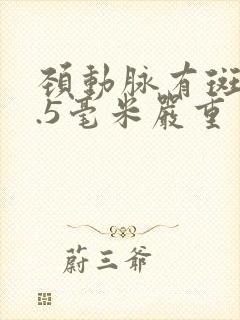 頚動脉有斑
.5毫米嚴重
蔚三爺